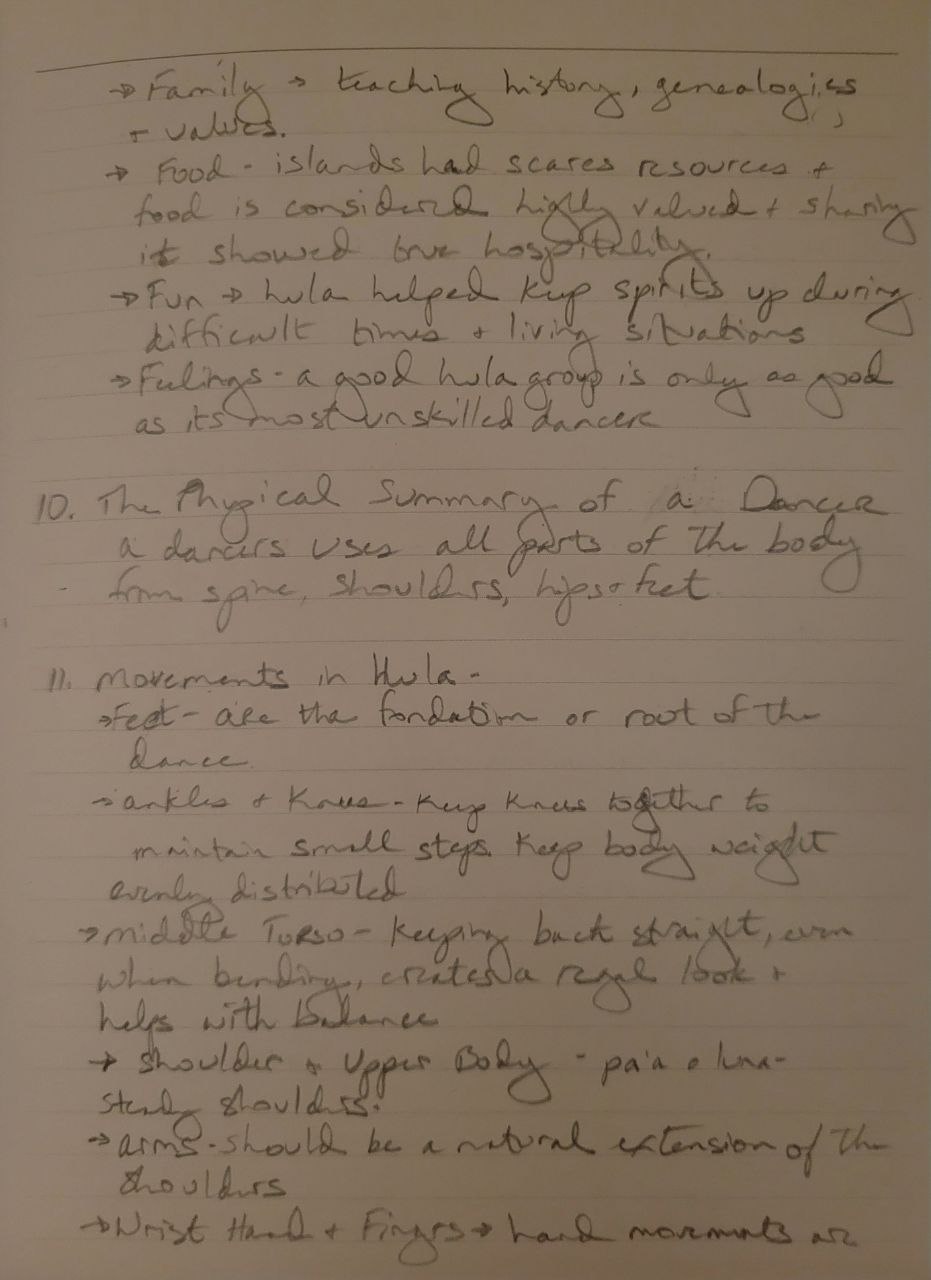 → Family → teaching history, genealogies,
+ values.
→ Food - islands had scares resources +
food is considered highly valued + sharing
it showed true hospitality.
→ Fun → hula helped keep spirits up during
difficult times + living situations
→ Feelings - a good hula group is only as good
as its most unskilled dancer
10. The Physical Summary of a Dancer
a dancers uses all parts of the body
from spine, shoulders, hips + feet
11. Movements in Hula -
→ Feet - are the fondation or root of the
dance.
→ ankles + Knees - Keep Knees together to
maintain small steps. Keep body weight
evenly distributed
→ middle Torso - Keeping back straight, even
when bending, creates a regal look +
helps with balance
→ Shoulder + Upper Body - pa'a o luna -
steady shoulders.
→ arms - should be a natural extension of the
shoulders
→ Wrist Hand + Fingers → hand movements are